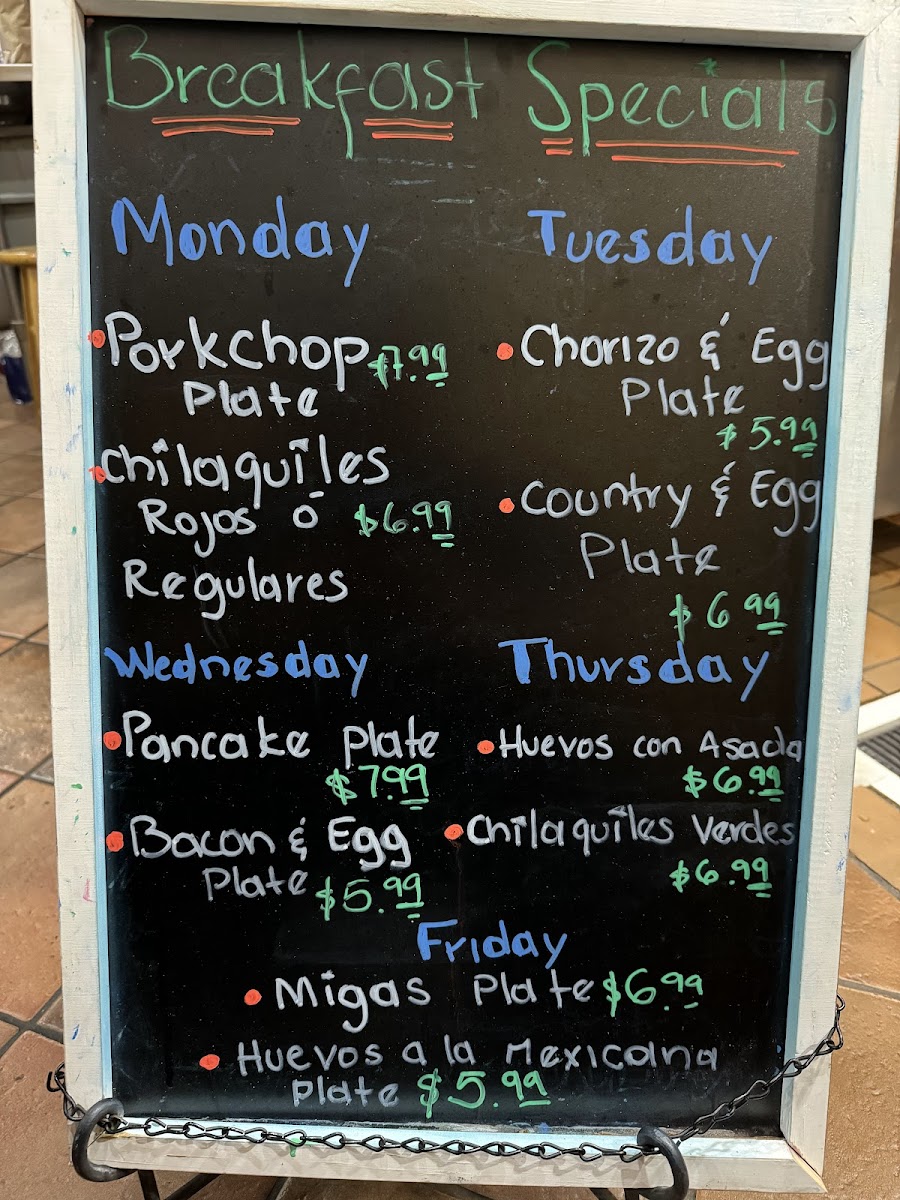 Breakfast Specials
Monday
Porkchop $7.99
Plate
Chilaquiles
Rojos ó $6.99
Regulares
Tuesday
Chorizo & Egg
Plate
$5.99
Country & Egg
Plate
$6.99
Wednesday
Pancake Plate
$7.99
Bacon & Egg
Plate $5.99
Thursday
Huevos con Asada
$6.99
Chilaquiles Verdes
$6.99
Friday
Migas Plate $6.99
Huevos a la Mexicana
Plate $5.99